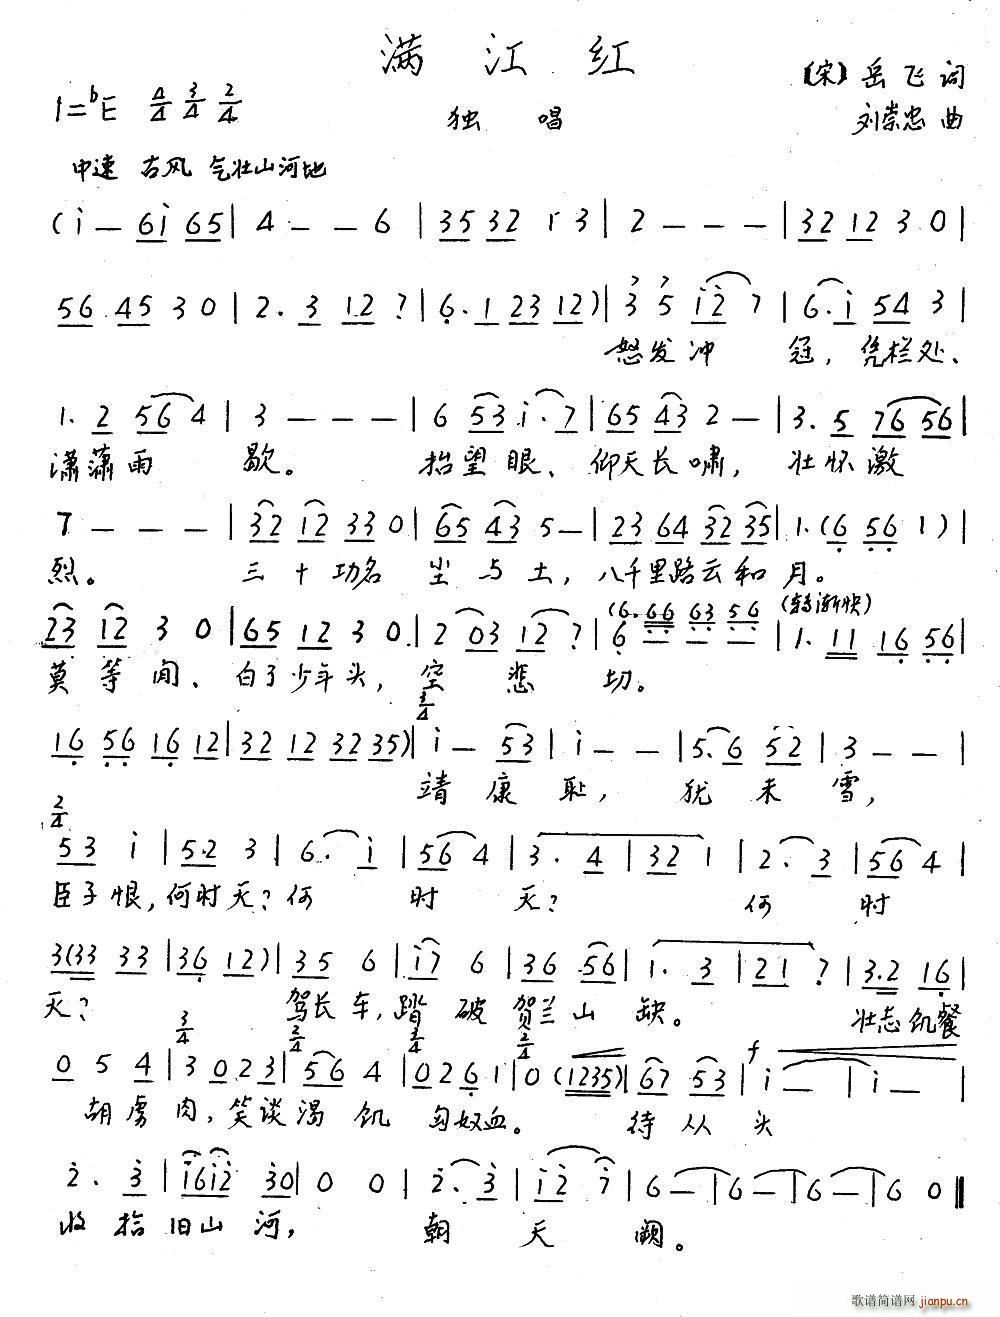 满江红
〔宋〕岳飞词
1=♭E 4/4 3/4 2/4
独唱
刘崇忠曲
中速 古风 气壮山河地
(i — 6i 65 | 4 — — 6 | 35 32 1 3 | 2 — — — | 32 12 3 0 |
56 45 3 0 | 2. 3 12 7 | 6. 1 23 12) | 3 5 i2 7 | 6. i 54 3 |
怒发冲冠，凭栏处、
1. 2 56 4 | 3 — — — | 6 53 i. 7 | 65 43 2 — | 3. 5 76 56 |
潇潇雨歇。抬望眼、仰天长啸，壮怀激
7 — — — | 32 12 33 0 | 65 43 5 — | 23 64 32 35 | 1. (6 56 1) |
烈。三十功名尘与土，八千里路云和月。
(6. 66 63 56 (转渐快)
23 12 3 0 | 65 12 3 0 | 2 03 12 7 | 6 — — — | 1. 11 16 56 |
莫等闲、白了少年头，空悲切。
3/4
16 56 16 12 | 32 12 32 35) | i — 53 | i — — | 5. 6 52 | 3 — — |
靖康耻，犹未雪，
2/4
53 i | 5.2 3 | 6. i | 56 4 | 3. 4 | 32 1 | 2. 3 | 56 4 |
臣子恨，何时灭？何时灭？何时
3(33 33 | 36 12) | 35 6 | i7 6 | 36 56 | 1. 3 | 21 7 | 3.2 16 |
灭？驾长车，踏破贺兰山缺。壮志饥餐
3/4 2/4 3/4 2/4 f
0 5 4 | 3 02 3 | 56 4 | 02 6 1 | 0 (1235) | 67 53 | i — | i — |
胡虏肉，笑谈渴饥匈奴血。待从头
2. 3 | i6i2 30 | 0 0 | 2. 3 | i2 7 | 6 — | 6 — | 6 — | 6 0 ‖
收拾旧山河，朝天阙。
歌谱简谱网
jianpu.cn